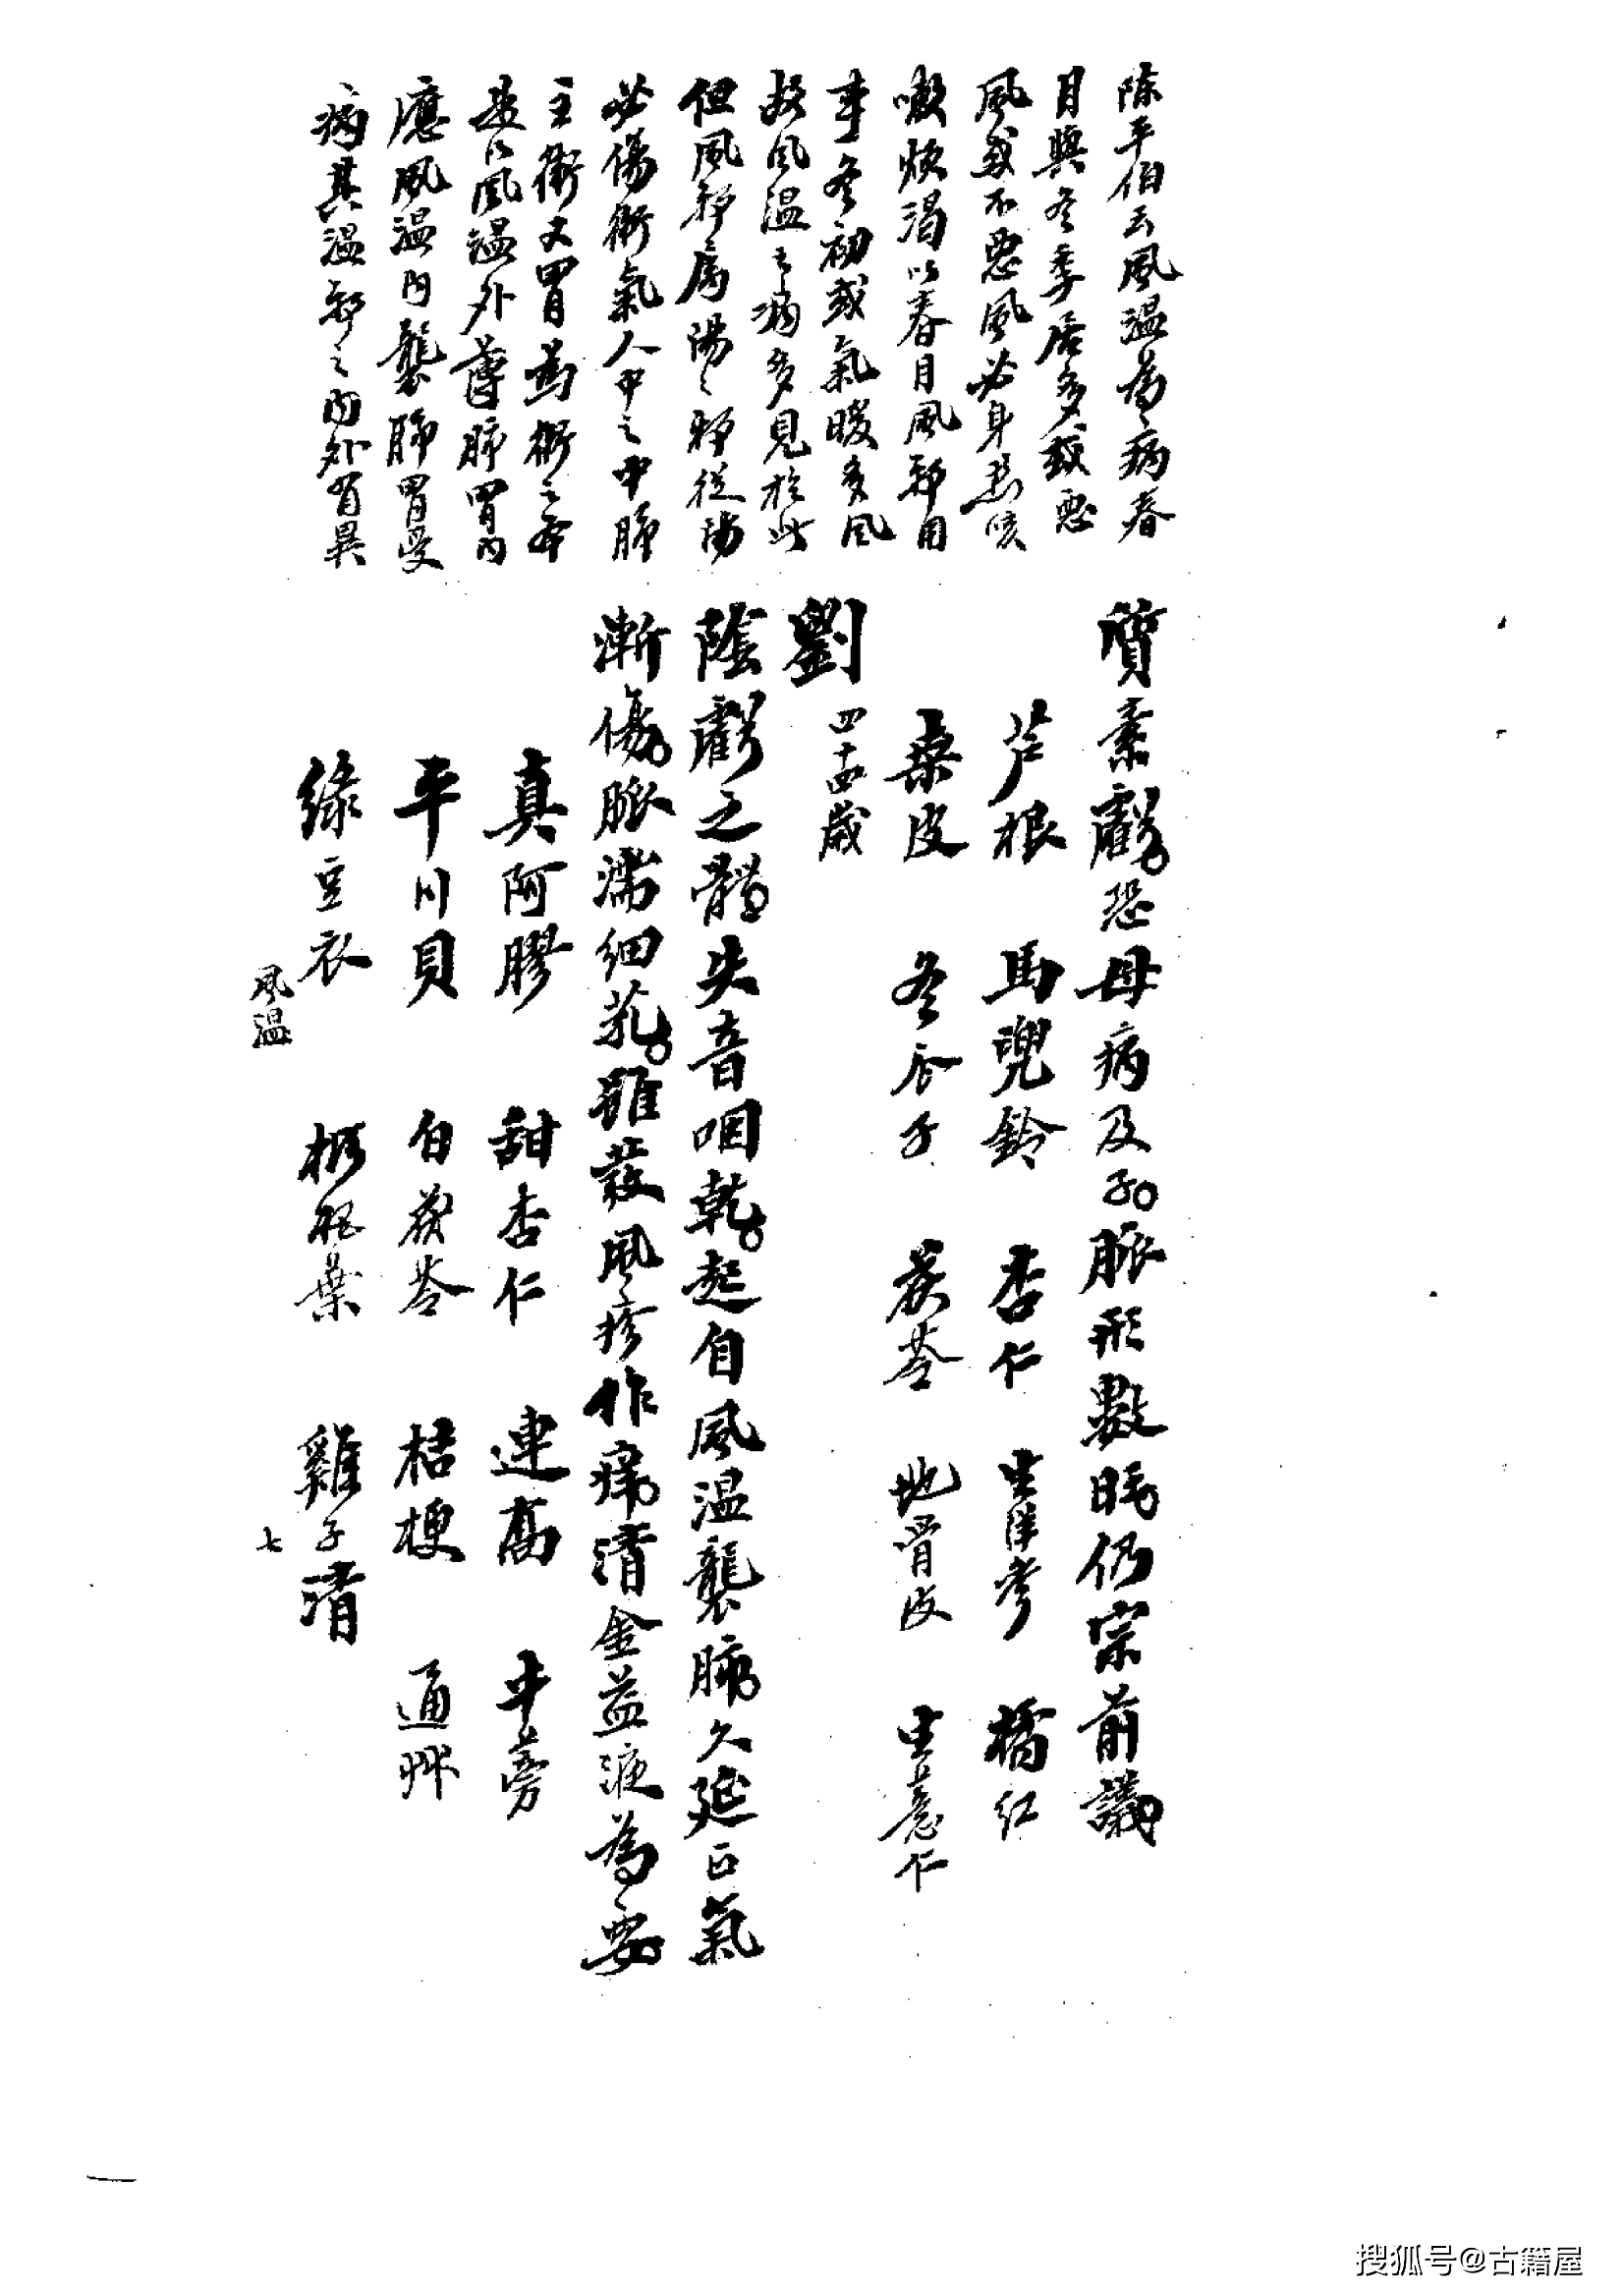 陈平伯云風温為病春
月與冬季居多或惡
風或不惡風必身熱咳
嗽煩渴以春月風邪用
事冬初或氣暖多風
故風温之病多見於此
但風邪屬陽之邪從陽
必傷衛氣人中之中肺
主衛又胃為衛之本
是以風温外薄肺胃内
應風温内襲肺胃受
病其温邪之内外有異
質素虧恐母病及子脈形數時仍宗前議
芦根 馬兜鈴 杏仁 生洋參 橘红
桑皮 冬瓜子 茯苓 地骨皮 生薏仁
劉 四十四歲
陰虧之體失音咽乾起自風温襲肺久延正氣
漸傷脈濡細芤雖發風疹作痛清金益液為要
真阿膠 甜杏仁 連喬 牛蒡
平川貝 白茯苓 桔梗 通草
綠豆衣 枇杷葉 雞子清
風温
七
搜狐号@古籍屋